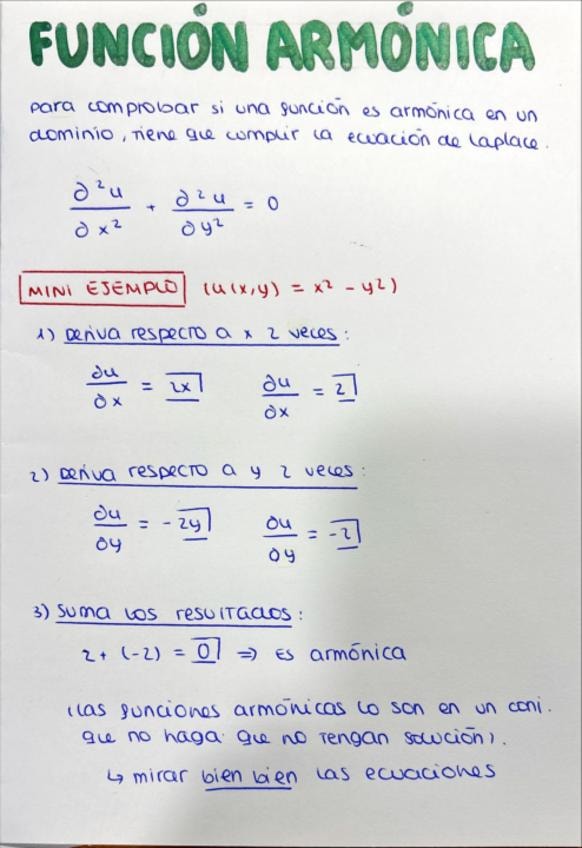 FUNCIÓN ARMÓNICA
Para comprobar si una función es armónica en un
dominio, tiene que cumplir la ecuación de Laplace.
∂²u/∂x² + ∂²u/∂y² = 0
MINI EJEMPLO (u(x,y) = x² - y²)
1) Deriva respecto a x 2 veces:
∂u/∂x = 2x ∂u/∂x = 2
2) Deriva respecto a y 2 veces:
∂u/∂y = -2y ∂u/∂y = -2
3) Suma los resultados:
2 + (-2) = 0 ⇒ Es armónica
(las funciones armónicas lo son en un conj.
que no haga que no tengan solución).
↳ mirar bien bien las ecuaciones